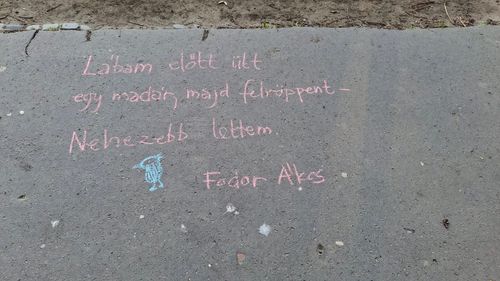 Lábam előtt ült
egy madár, majd felröppent—
Nehezebb lettem.
Fodor Ákos